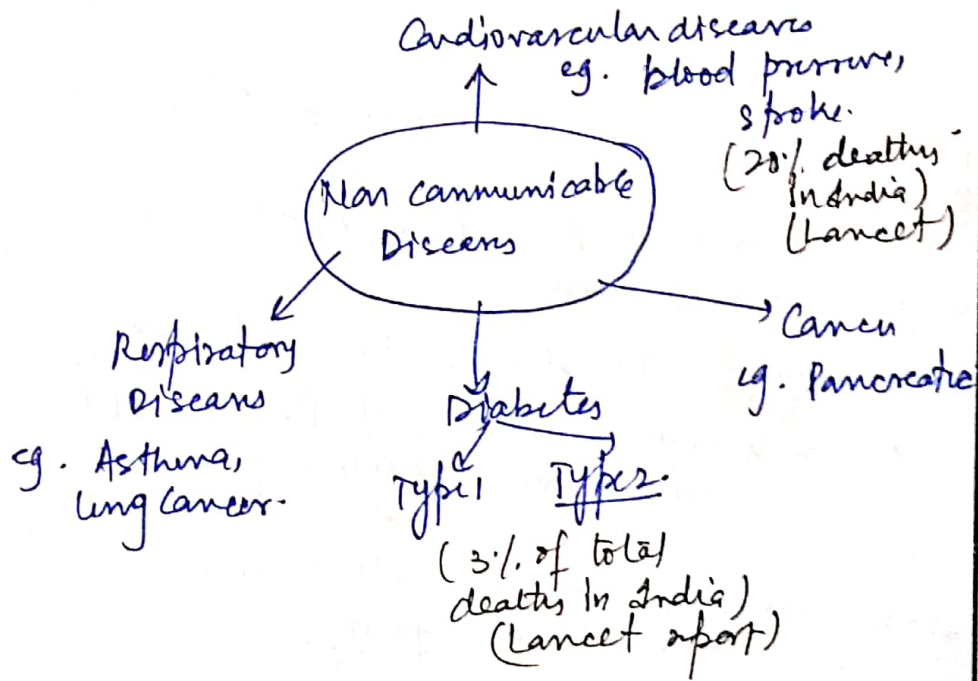 Cardiovascular diseases
eg. blood pressure,
stroke.
(20% deaths
in India)
(Lancet)
Non communicable
Diseases
Respiratory
Diseases
eg. Asthma,
lung cancer.
Diabetes
Type 1 Type 2.
(3% of total
deaths in India)
(Lancet report)
Cancer
eg. Pancreatic